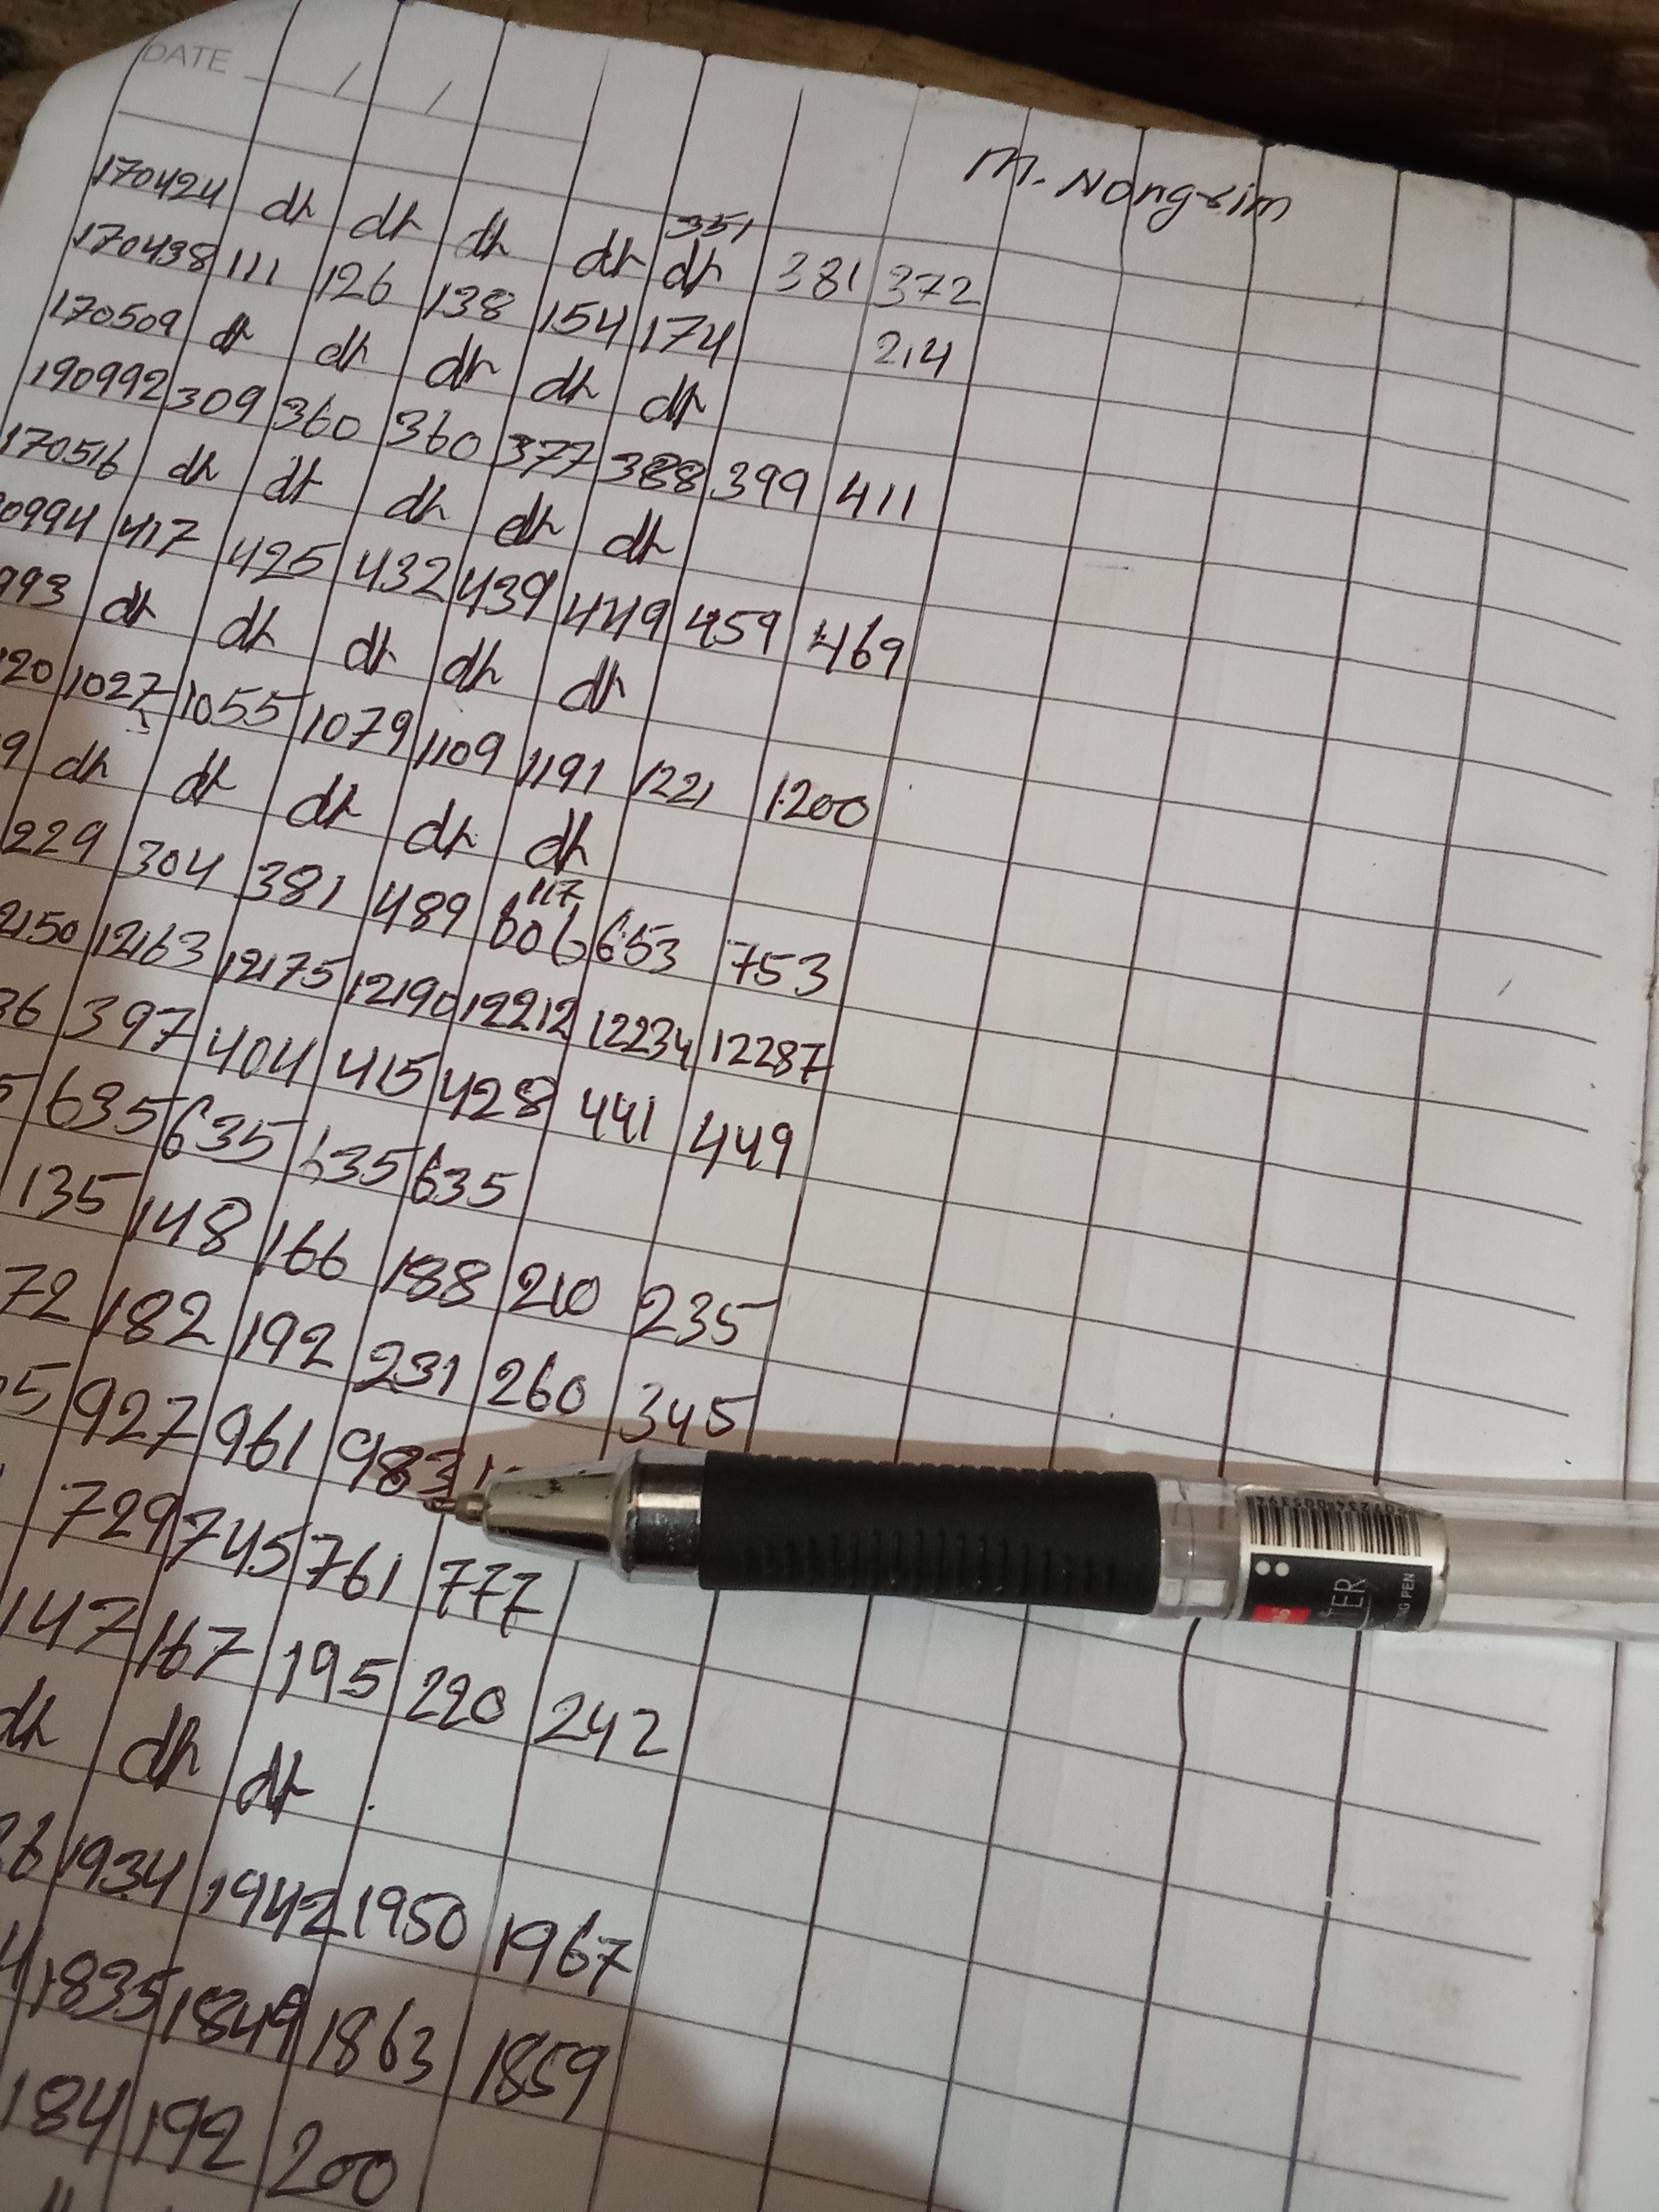 DATE / /
M. Nongrim
170424 dr dr dr dr 351 dr 381 372
170438 111 126 138 154 174 214
170509 dr dr dr dr dr
190992 309 360 360 377 388 399 411
170516 dr dr dr dr dr
0994 417 425 432 439 449 459 469
993 dr dr dr dr dr
20 1027 1055 1079 1109 1191 1221 1200
9 dr dr dr dr dr
229 304 381 489 117 606 653 753
2150 12163 12175 12190 12212 12234 12287
36 397 404 415 428 441 449
5 635 635 635 635
135 148 166 188 210 235
72 182 192 231 260 345
5 927 961 983
729 745 761 777
147 167 195 220 242
dr dr dr
26 1934 1942 1950 1967
4 1835 1849 1863 1859
184 192 200